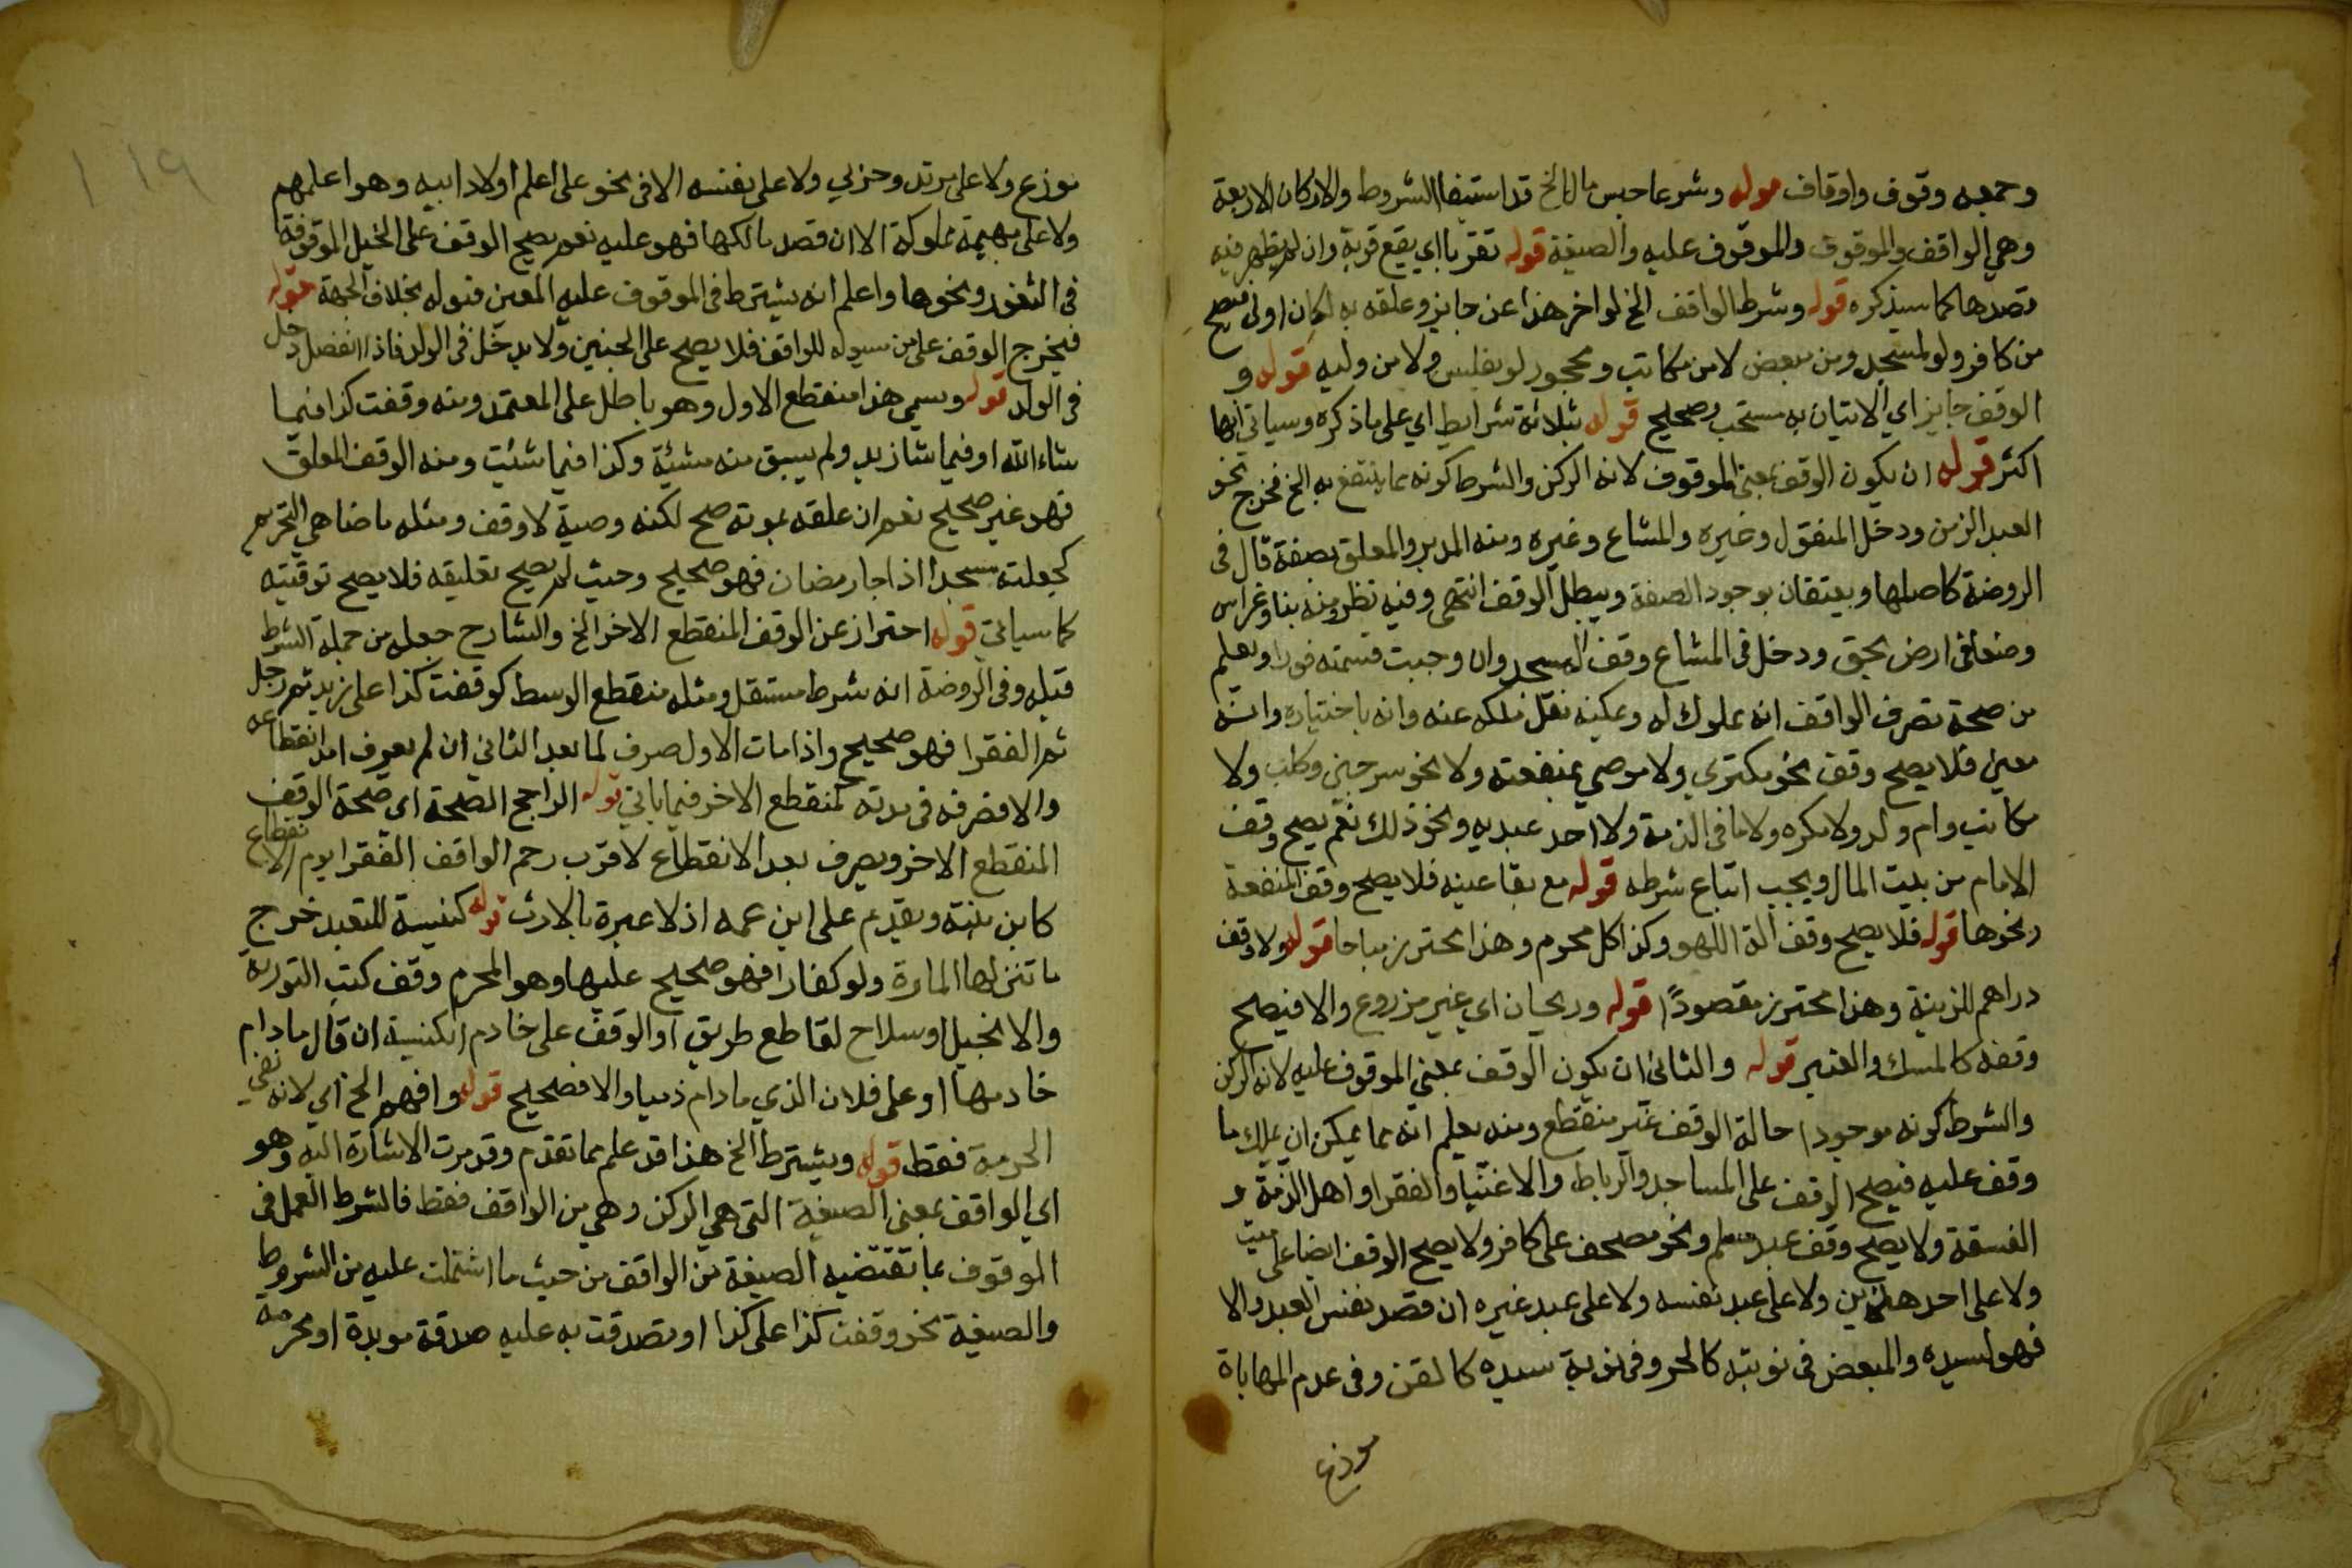 وجمعه وقوف واوقاف قوله وشرعا حبس مال الخ قد استيفا الشروط والاركان الاربعة
وهي الواقف والموقوف والموقوف عليه والصيغة قوله تقربا اي يقع قربة وان لم يظهر فيه
قصدها كما سيذكره قوله وشرط الواقف الخ لو اخر هذا عن جايز وعلقه به لكان اولى فيصح
من كافر ولو لمسجد ومن مبعض لا من مكاتب ومحجور لو بفلس ولا من وليه قوله و
الوقف جايز اي الاتيان به مستحب وصحيح قوله بثلاثة شرايط اي على ما ذكره وسياتي انها
اكثر قوله ان يكون الوقف بمعنى الموقوف لانه الركن والشرط كونه مما ينتفع به الخ فخرج نحو
العبد الزمن ودخل المنقول وغيره والمشاع وغيره ومنه المدبر والمعلق بصفة قال في
الروضة كاصلها ويعتقان بوجود الصفة ويبطل الوقف انتهى وفيه نظر ومنه بنا وغراس
وضعا في ارض بحق ودخل في المشاع وقف المسجد وان وجبت قسمته فورا ويعلم
من صحة تصرف الواقف انه مملوك له ويمكنه نقل ملكه عنه وانه باختياره وانه
معين فلا يصح وقف نحو مكتري ولا موصي بمنفعته ولا نحو سرجين وكلب ولا
مكاتب وام ولد ولا مكره ولا ما في الذمة ولا احد عبديه ونحو ذلك نعم يصح وقف
الامام من بيت المال ويجب اتباع شرطه قوله مع بقا عينه فلا يصح وقف المنفعة
ونحوها قوله فلا يصح وقف الة اللهو وكذا كل محرم وهذا محترز مباحا قوله ولا وقف
دراهم للزينة وهذا محترز مقصودًا قوله وريحان اي غير مزروع والا فيصح
وقفه كالمسك والعنبر قوله والثاني ان يكون الوقف بمعنى الموقوف عليه لانه الركن
والشرط كونه موجودا حالة الوقف غير منقطع ومنه يعلم انه مما يمكن ان يملك ما
وقف عليه فيصح الوقف على المساجد والرباط والاغنيا والفقرا واهل الذمة و
الفسقة ولا يصح وقف عبد مسلم ونحو مصحف على كافر ولا يصح الوقف ايضا على ميت
ولا على احد هذين ولا على عبد نفسه ولا على عبد غيره ان قصد نفس العبد والا
فهو لسيده والمبعض في نوبته كالحر وفي نوبة سيده كالقن وفي عدم المهاياة
موزع
موزع ولا على مرتد وحربي ولا على نفسه الا في نحو على اعلم اولاد ابيه وهو اعلمهم
ولا على بهيمة مملوكة الا ان قصد مالكها فهو عليه نعم يصح الوقف على الخيل الموقوفة
في الثغور ونحوها واعلم انه يشترط في الموقوف عليه المعين قبوله بخلاف الجهة قوله
فيخرج الوقف على من سيولد للواقف فلا يصح على الجنين ولا يدخل في الولد فاذا انفصل دخل
في الولد قوله ويسمي هذا منقطع الاول وهو باطل على المعتمد ومنه وقفت كذا فيما
شاء الله او فيما شا زيد ولم يسبق منه مشيئة وكذا فيما شئت ومنه الوقف المعلق
فهو غير صحيح نعم ان علقه بموته صح لكنه وصية لا وقف ومثله ما ضاهى التحريم
كجعلته مسجدا اذا جا رمضان فهو صحيح وحيث لم يصح تعليقه فلا يصح توقيته
كما سياتي قوله احتراز عن الوقف المنقطع الاخر الخ والشارح جعله من جملة الشرط
قبله وفي الروضة انه شرط مستقل ومثله منقطع الوسط كوقفت كذا على زيد ثم رجل
ثم الفقرا فهو صحيح واذا مات الاول صرف لما بعد الثاني ان لم يعرف امد انقطاعه
والا فصرفه في مدته كمنقطع الاخر فيما ياتي قوله الراجح الصحة اي صحة الوقف
المنقطع الاخر ويصرف بعد الانقطاع لاقرب رحم الواقف الفقرا يوم الانقطاع
كابن بنته ويقدم على ابن عمه اذ لا عبرة بالارث قوله كنيسة للتعبد خرج
ما تنزلها المارة ولو كفارا فهو صحيح عليها وهو المحرم وقف كتب التورية
والانجيل او سلاح لقاطع طريق او الوقف على خادم الكنيسة ان قال ما دام
خادمها او على فلان الذي ما دام ذميا والا فصحيح قوله وافهم الخ اي لانه نفي
الحرمة فقط قوله ويشترط الخ هذا قد علم مما تقدم وقد مرت الاشارة اليه وهو
اي الواقف بمعنى الصيغة التي هي الركن وهي من الواقف فقط فالشرط العمل في
الموقوف بما تقتضيه الصيغة من الواقف من حيث ما اشتملت عليه من الشروط
والصيغة نحو وقفت كذا على كذا او تصدقت به عليه صدقة موبدة او محرمة
١١٩